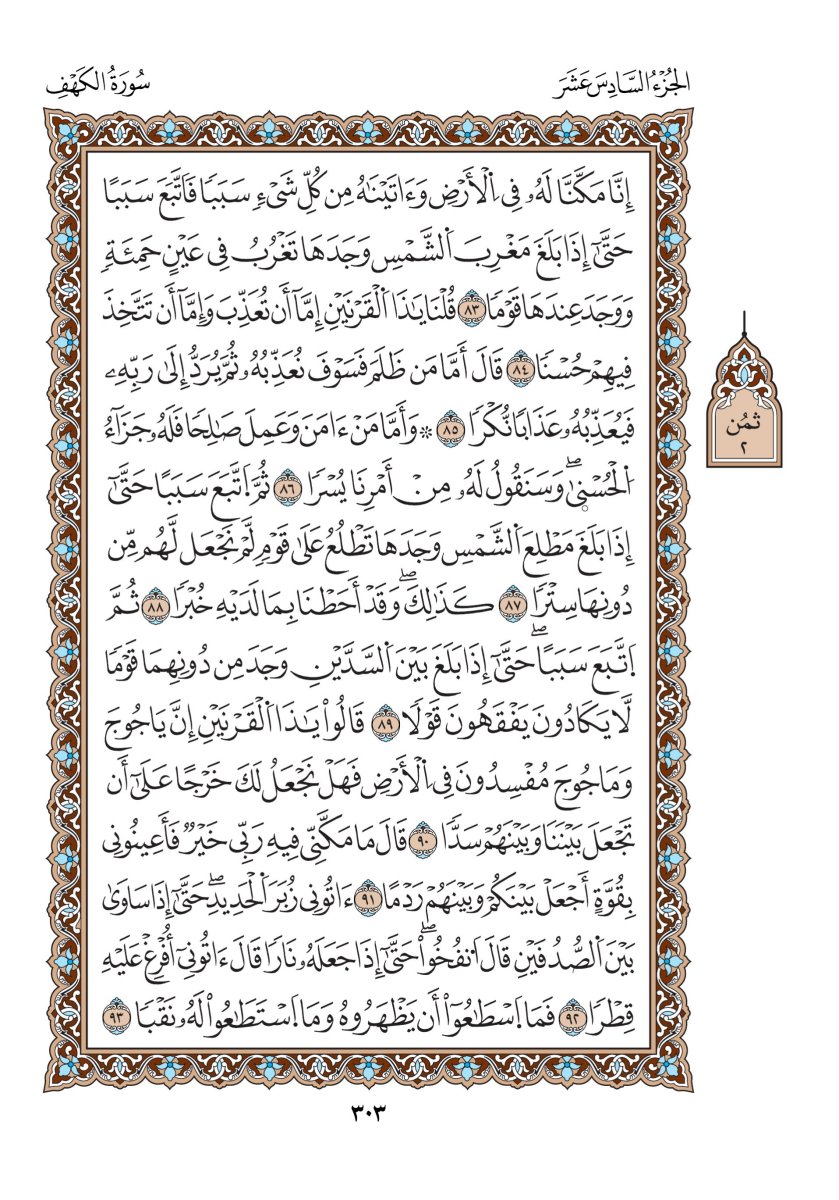 الجُزْءُ السَّادِسَ عَشَرَ
سُورَةُ الكَهْفِ
إِنَّا مَكَّنَّا لَهُۥ فِي اِ۬لْأَرْضِ وَءَاتَيْنَٰهُ مِن كُلِّ شَيْءٖ سَبَبٗا فَاتَّبَعَ سَبَبًا
حَتَّىٰٓ إِذَا بَلَغَ مَغْرِبَ اَ۬لشَّمْسِ وَجَدَهَا تَغْرُبُ فِي عَيْنٍ حَمِئَةٖ
وَوَجَدَ عِندَهَا قَوْمٗا ٨٣ قُلْنَا يَٰذَا اَ۬لْقَرْنَيْنِ إِمَّآ أَن تُعَذِّبَ وَإِمَّآ أَن تَتَّخِذَ
فِيهِمْ حُسْنٗا ٨٤ قَالَ أَمَّا مَن ظَلَمَ فَسَوْفَ نُعَذِّبُهُۥ ثُمَّ يُرَدُّ إِلَىٰ رَبِّهِۦ
فَيُعَذِّبُهُۥ عَذَابٗا نُّكْرٗا ٨٥ ۞ وَأَمَّا مَنْ ءَامَنَ وَعَمِلَ صَٰلِحٗا فَلَهُۥ جَزَآءُ
اُ۬لْحُسْنۭيٰۖ وَسَنَقُولُ لَهُۥ مِنْ أَمْرِنَا يُسْرٗا ٨٦ ثُمَّ اَ۪تَّبَعَ سَبَبًا حَتَّىٰٓ
إِذَا بَلَغَ مَطْلِعَ اَ۬لشَّمْسِ وَجَدَهَا تَطْلُعُ عَلَىٰ قَوْمٖ لَّمْ نَجْعَل لَّهُم مِّن
دُونِهَا سِتْرٗا ٨٧ كَذَٰلِكَۖ وَقَدْ أَحَطْنَا بِمَا لَدَيْهِ خُبْرٗا ٨٨ ثُمَّ
اَ۪تَّبَعَ سَبَبًاۖ حَتَّىٰٓ إِذَا بَلَغَ بَيْنَ اَ۬لسَّدَّيْنِ وَجَدَ مِن دُونِهِمَا قَوْمٗا
لَّا يَكَادُونَ يَفْقَهُونَ قَوْلٗا ٨٩ قَالُواْ يَٰذَا اَ۬لْقَرْنَيْنِ إِنَّ يَاجُوجَ
وَمَاجُوجَ مُفْسِدُونَ فِي اِ۬لْأَرْضِ فَهَلْ نَجْعَلُ لَكَ خَرْجًا عَلَىٰٓ أَن
تَجْعَلَ بَيْنَنَا وَبَيْنَهُمْ سَدّٗا ٩٠ قَالَ مَا مَكَّنِّي فِيهِ رَبِّي خَيْرٞ فَأَعِينُونِي
بِقُوَّةٍ أَجْعَلْ بَيْنَكُمْ وَبَيْنَهُمْ رَدْمًا ٩١ ءَاتُونِي زُبَرَ اَ۬لْحَدِيدِۖ حَتَّىٰٓ إِذَا سَاوَىٰ
بَيْنَ اَ۬لصُّدُفَيْنِ قَالَ اَ۟نفُخُواْۖ حَتَّىٰٓ إِذَا جَعَلَهُۥ نَارٗا قَالَ ءَاتُونِيٓ أُفْرِغْ عَلَيْهِ
قِطْرٗا ٩٢ فَمَا اَ۪سْطَٰعُوٓاْ أَن يَظْهَرُوهُ وَمَا اَ۪سْتَطَٰعُواْ لَهُۥ نَقْبٗا ٩٣
ثمُن
٢
٣٠٣